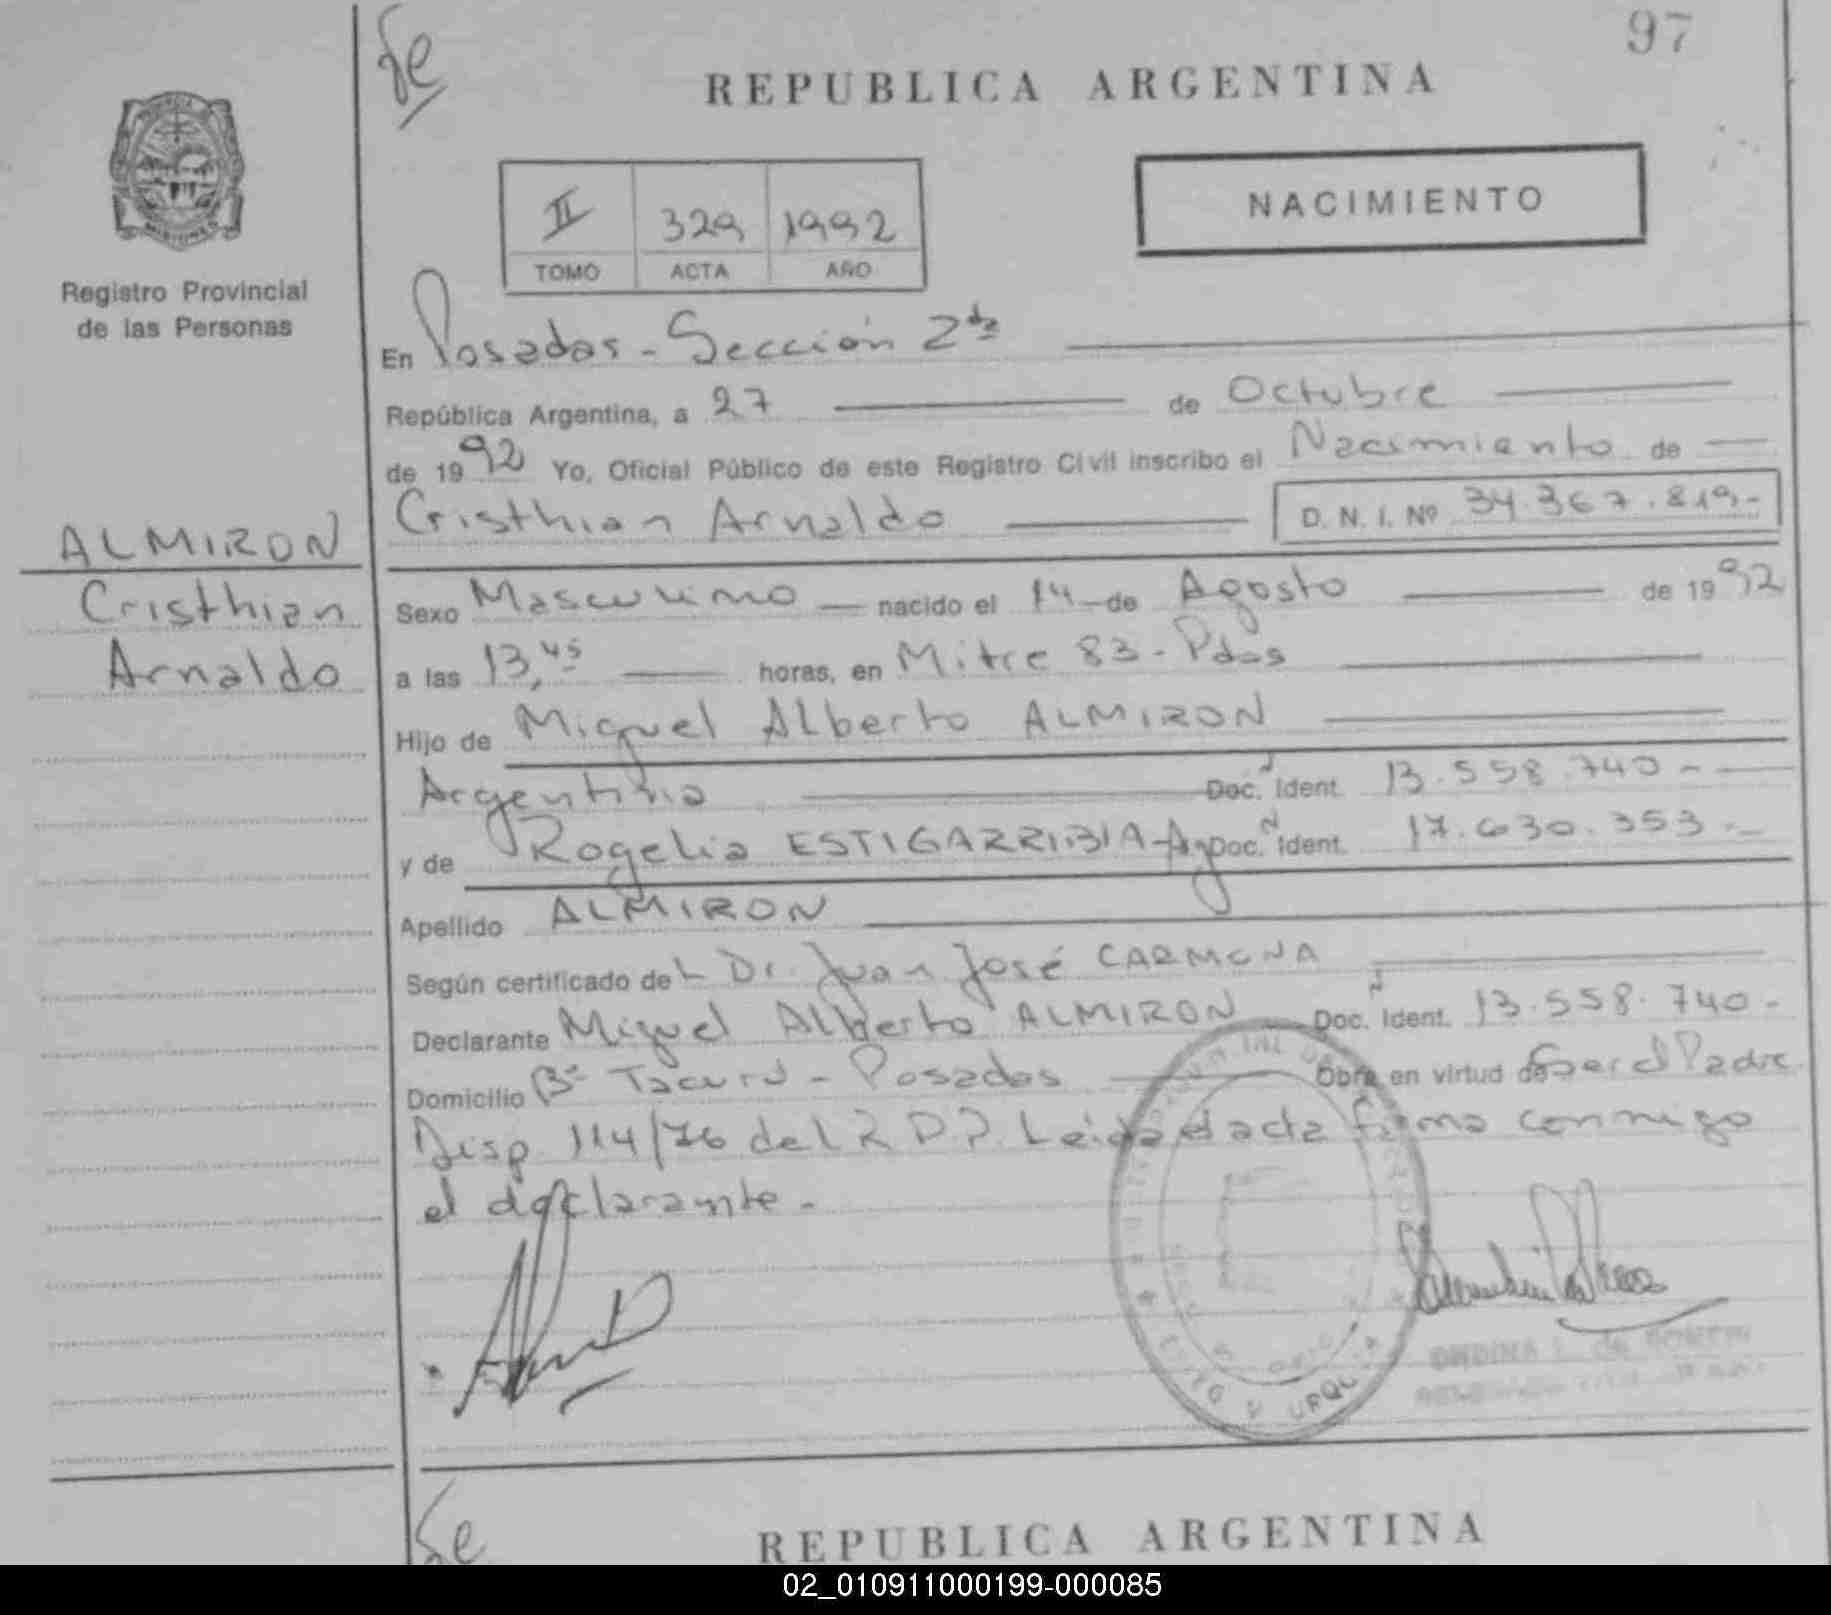 97
REPUBLICA ARGENTINA
MISIONES
Registro Provincial
de las Personas
NACIMIENTO
II 329 1992
TOMO ACTA AÑO
En Posadas - Sección 2da
República Argentina, a 27 de Octubre
de 1992 Yo, Oficial Público de este Registro Civil inscribo el Nacimiento de
Cristhian Arnaldo D. N. I. Nº 34.367.819.-
ALMIRON
Cristhian
Arnaldo
Sexo Masculino nacido el 14 de Agosto de 1992
a las 13,45 horas, en Mitre 83 - Pdas
Hijo de Miguel Alberto ALMIRON
Argentina Doc. Ident. 13.558.740 -
y de Rogelia ESTIGARRIBIA - Arg Doc. Ident. 17.630.353.-
Apellido ALMIRON
Según certificado del Dr. Juan José CARMONA
Declarante Miguel Alberto ALMIRON Doc. Ident. 13.558.740 -
Domicilio Bº - Posadas Obra en virtud de Ser el Padre
Disp. 114/76 del R.P.P. Leída el acta firma conmigo
el declarante. -
URQUIZA
REPUBLICA ARGENTINA
02_010911000199-000085